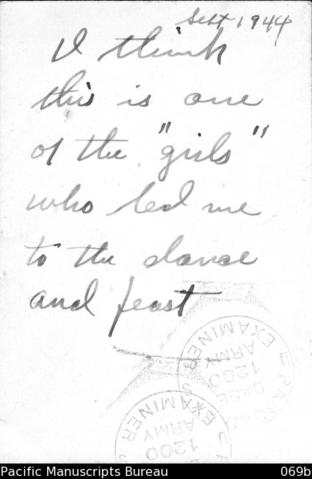 Sept 1944
I think
this is one
of the "girls"
who led me
to the dance
and feast
EXAMINER
BASE
1200
ARMY
EXAMINER
1200
ARMY
Pacific Manuscripts Bureau 069b